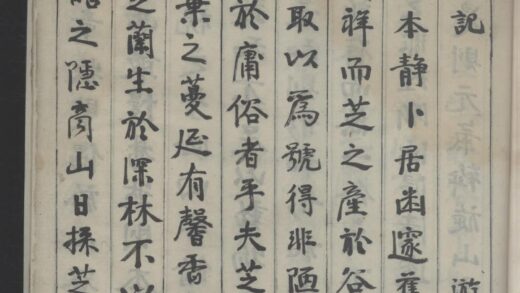 記 遊
本静卜居幽邃舊
祥而芝之產於谷
取以爲號得非陋
於庸俗者乎夫芝
葉之蔓延有馨香
之蘭生於深林不以
之隱商山日採芝